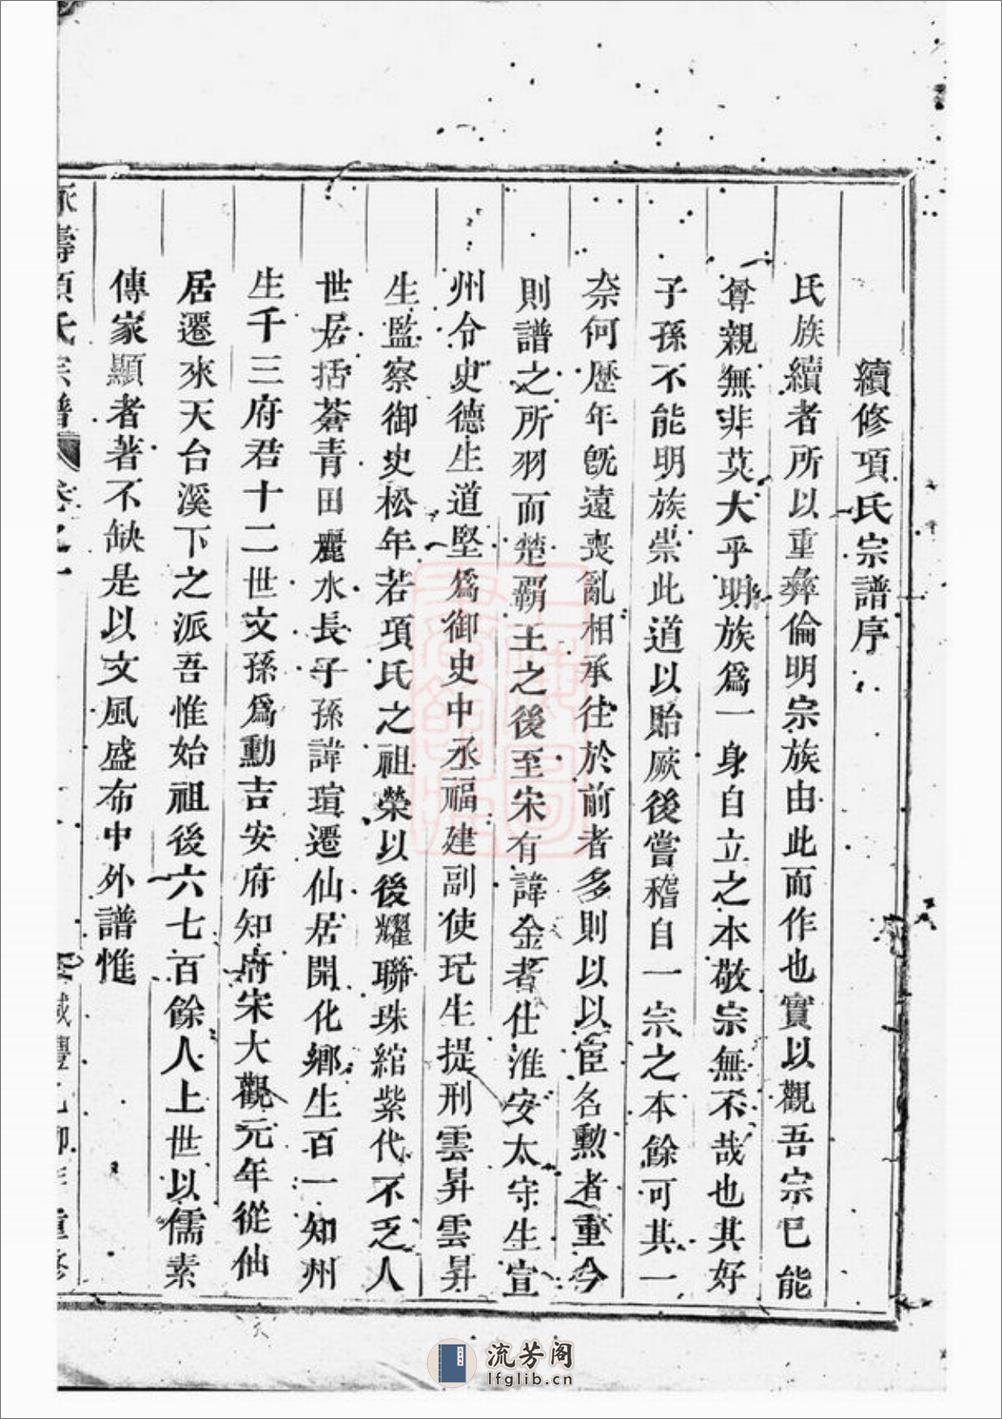 續修項氏宗譜序
氏族續者所以重彝倫明宗族由此而作也實以觀吾宗已能
尊親無非莫大乎明族爲一身自立之本敬宗無不哉也其好
子孫不能明族祟此道以貽厥後嘗稽自一宗之本餘可其一
奈何歷年旣遠喪亂相承往於前者多則以以宦名勳者重今
則譜之所羽而楚覇王之後至宋有諱金者仕淮安太守生宣
州令史德生道堅爲御史中丞福建副使玘生提刑雲昇雲昇
生監察御史松年若項氏之祖榮以後耀聯珠綰紫代不乏人
世居括蒼青田麗水長子孫諱瑄遷仙居開化鄉生百一知州
生千三府君十二世文孫爲勳吉安府知府宋大觀元年從仙
居遷來天台溪下之派吾惟始祖後六七百餘人上世以儒素
傳家顯者著不缺是以文風盛布中外譜惟
項氏宗譜 卷之一 咸豐乙卯年重修
流芳阁
lfglib.cn